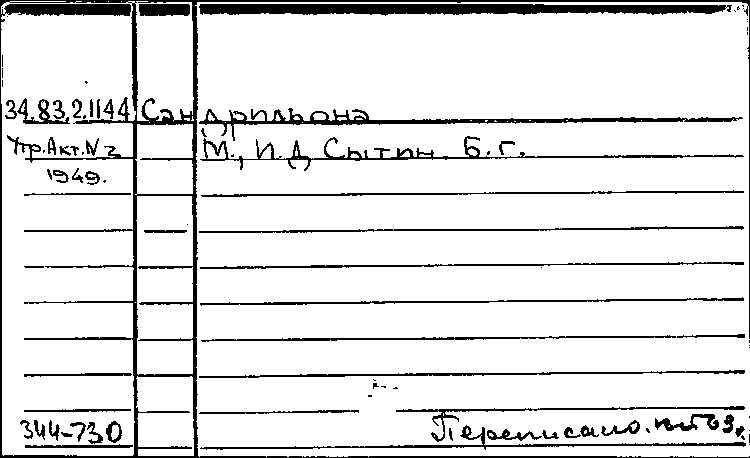 34.83.2.1144 Сандрильона
Утр.Акт.N2 М., И.Д. Сытин. Б.г.
1949.
344-730 Переписано.